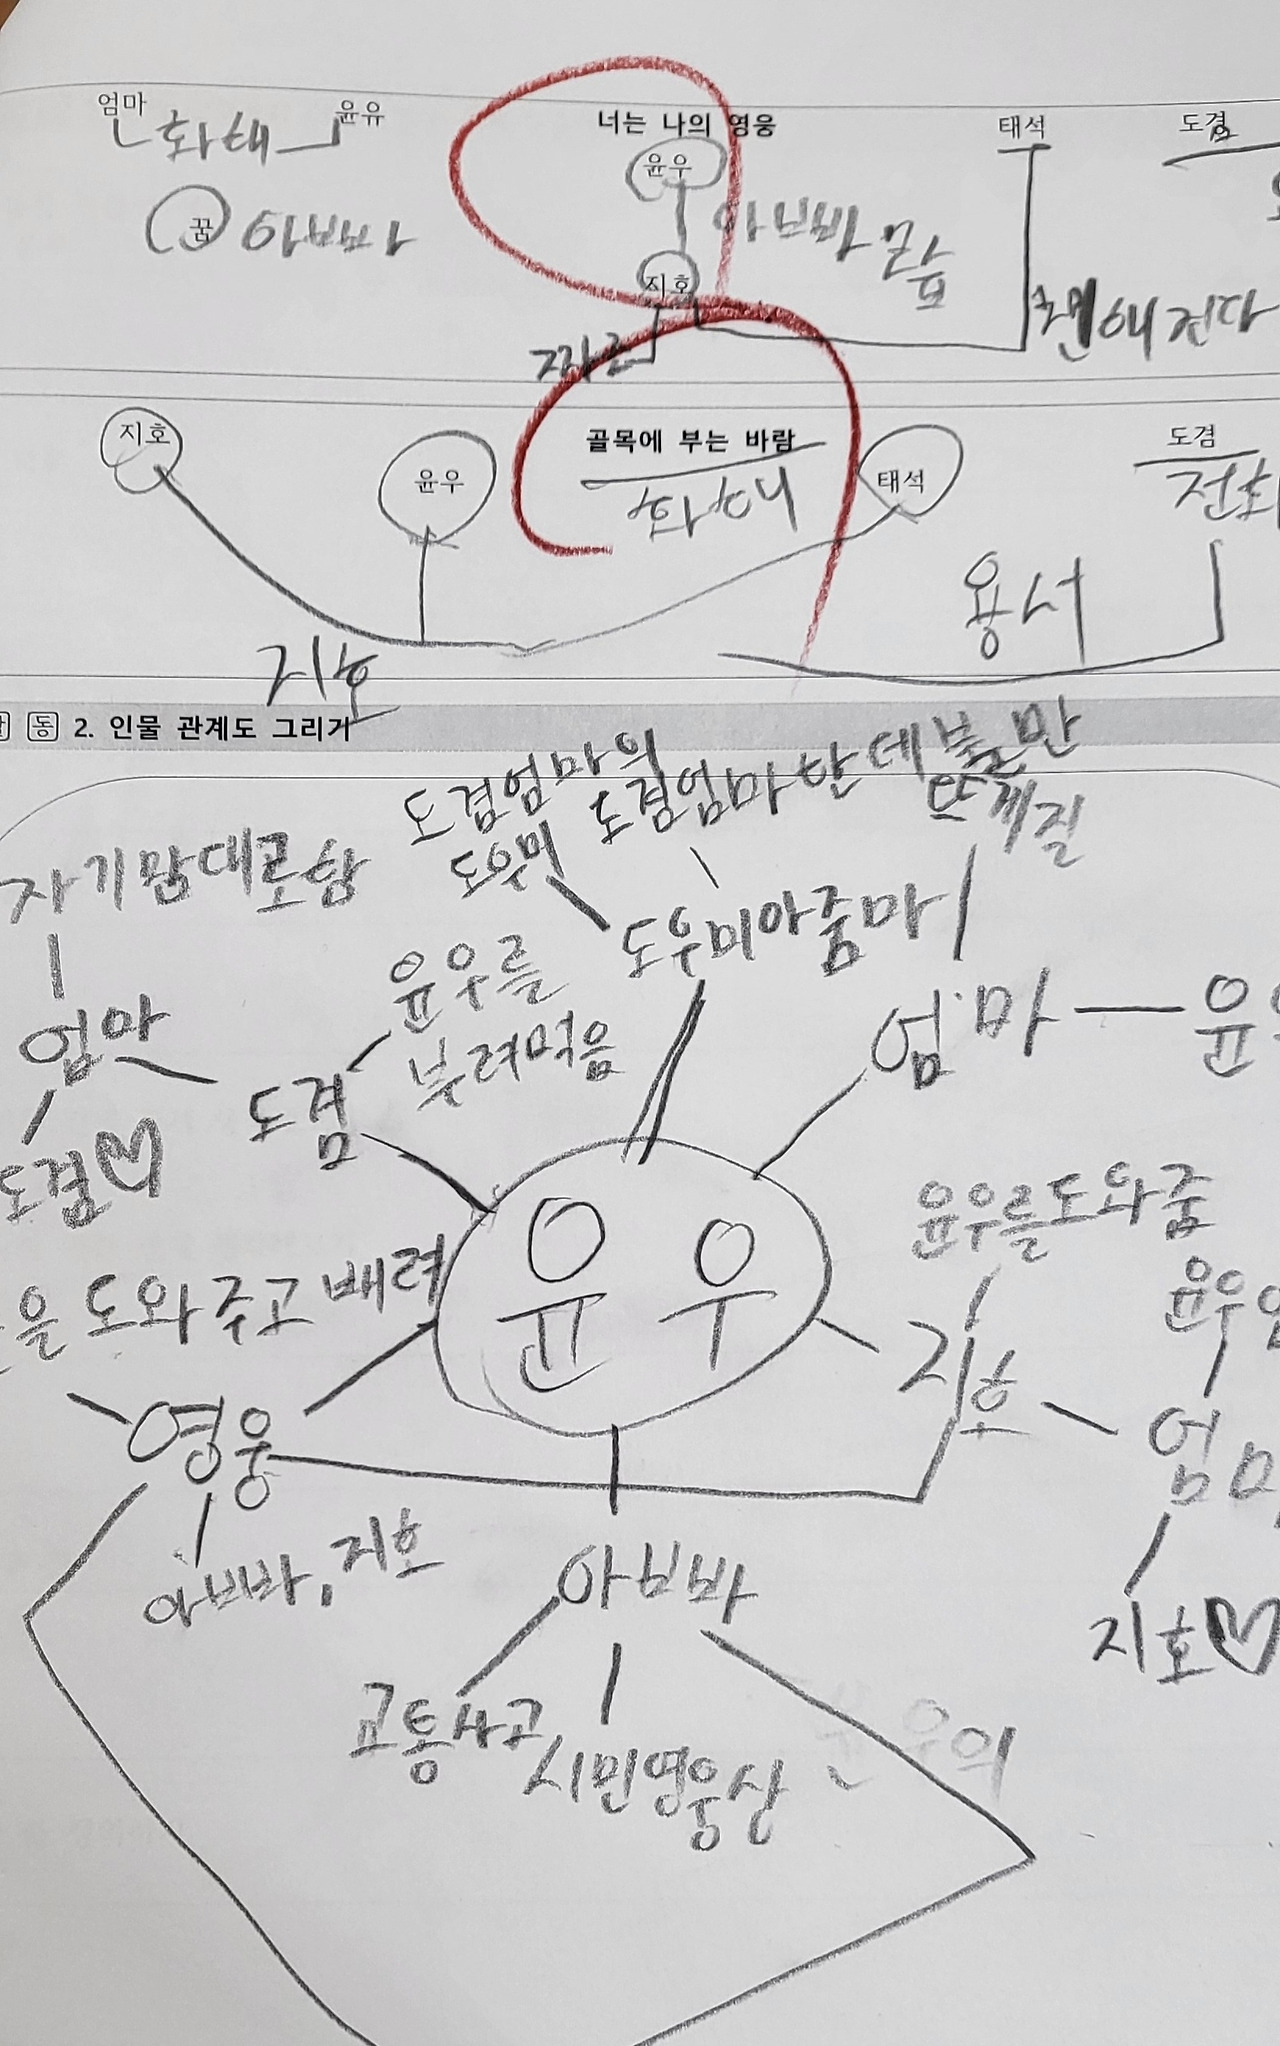 엄마
윤유
너는 나의 영웅
태석
도겸
화해
윤우
꿈
아빠
아빠
지호
짜른
친해진다
지호
윤우
골목에 부는 바람
태석
도겸
화해
전화
용서
지호
동 2. 인물 관계도 그리기
도겸엄마의
도우미
도겸엄마한테 불만
자기맘대로함
도우미아줌마
윤우를
부려먹음
엄마
엄마
도겸
도겸♡
윤우
윤우를 도와줌
을 도와주고 배려
지호
영웅
엄마
아빠, 지호
아빠
지호♡
교통사고
시민영웅상